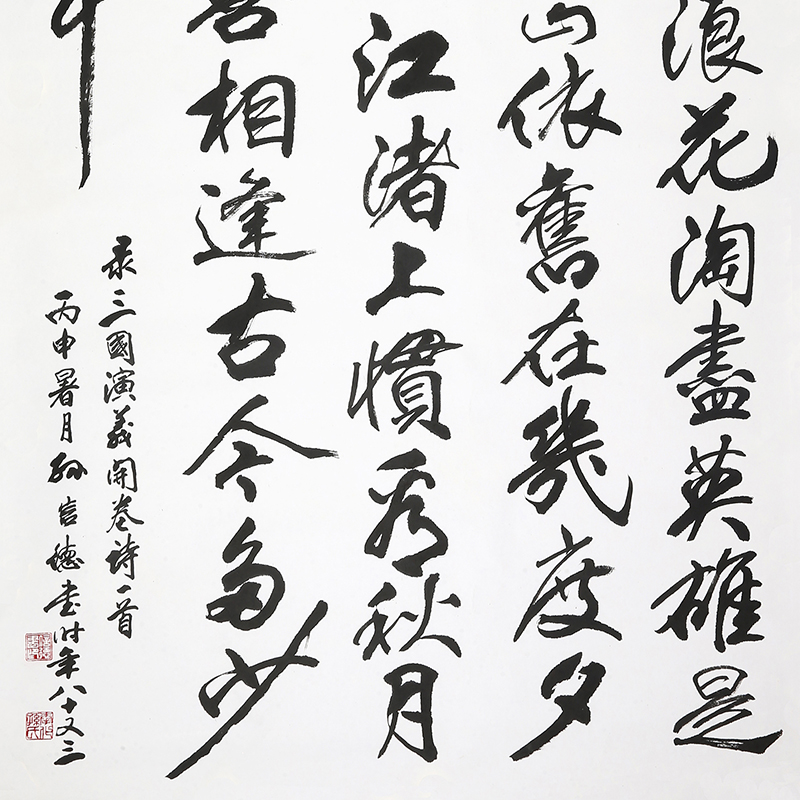 浪花淘盡英雄是
山依舊在幾度夕
江渚上慣看秋月
喜相逢古今多少
中
录三國演義開卷詩一首
丙申暑月孙信德书时年八十又三